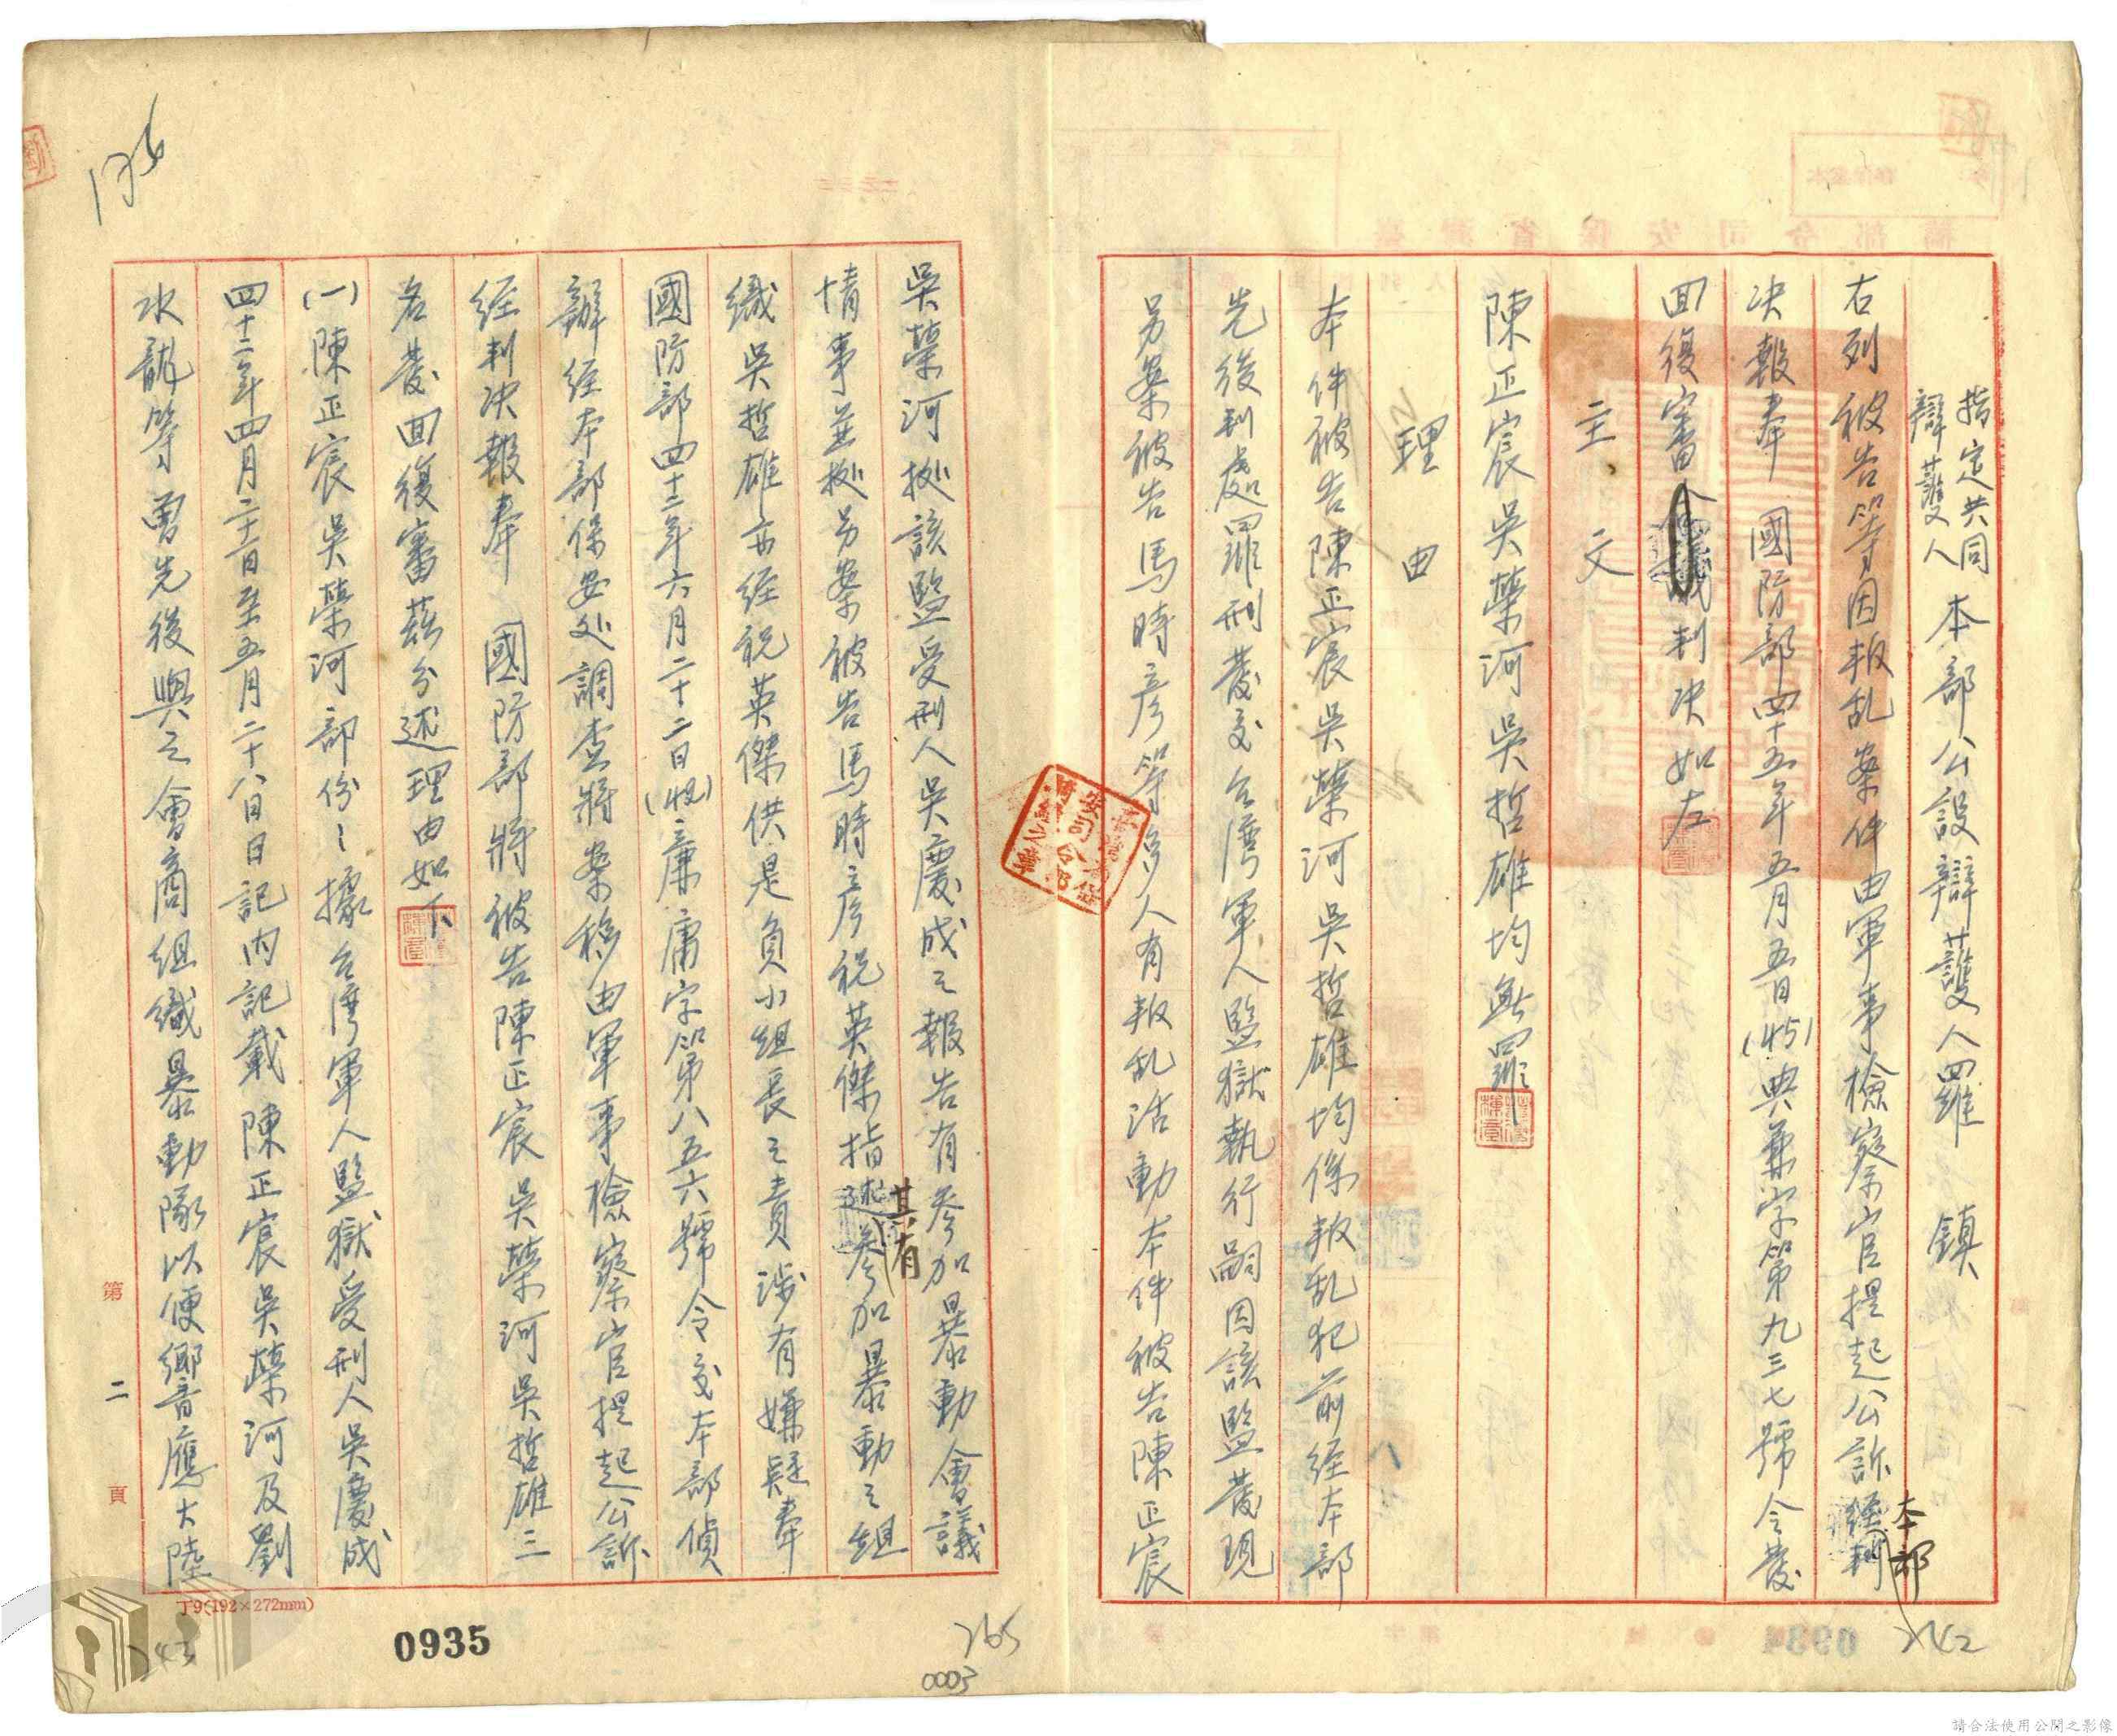 指定共同
辯護人
本部公設辯護人羅 鎮
右列被告等因叛乱案件由軍事檢察官提起公訴經本部判
決報奉 國防部四十五年五月五日(45)典兼字第九三七號令發
回復審判決如左
主 文
陳正宸吳榮河吳哲雄均無罪
理 由
本件被告陳正宸吳榮河吳哲雄均係叛乱犯前经本部
先後判處罪刑發交台灣軍人監獄執行嗣因該監發現
另案被告馬時彥等多人有叛乱活動本件被告陳正宸
吳榮河拠該監受刑人吳慶成之報告有參加暴動會議
情事並拠另案被告馬時彥祝英傑指述其有參加暴動之組
織吳哲雄亦经祝英傑供是負小組長之責涉有嫌疑奉
國防部四十二年六月二十二日(42)廉庸字第八五六號令交本部偵
辦经本部保安处調查將案移由軍事檢察官提起公訴
经判決報奉 國防部將被告陳正宸吳榮河吳哲雄三
名發回復審茲分述理由如下
(一)陳正宸吳榮河部份:據台灣軍人監獄受刑人吳慶成
四十二年四月二十一日至五月二十八日日記内記載陳正宸吳榮河及劉
水龍等曾先後與之會商組織暴動隊以便嚮應大陸
第 二 頁
丁9(192×272mm)
0935
265
0003
242
243
176
請合法使用公開之影像